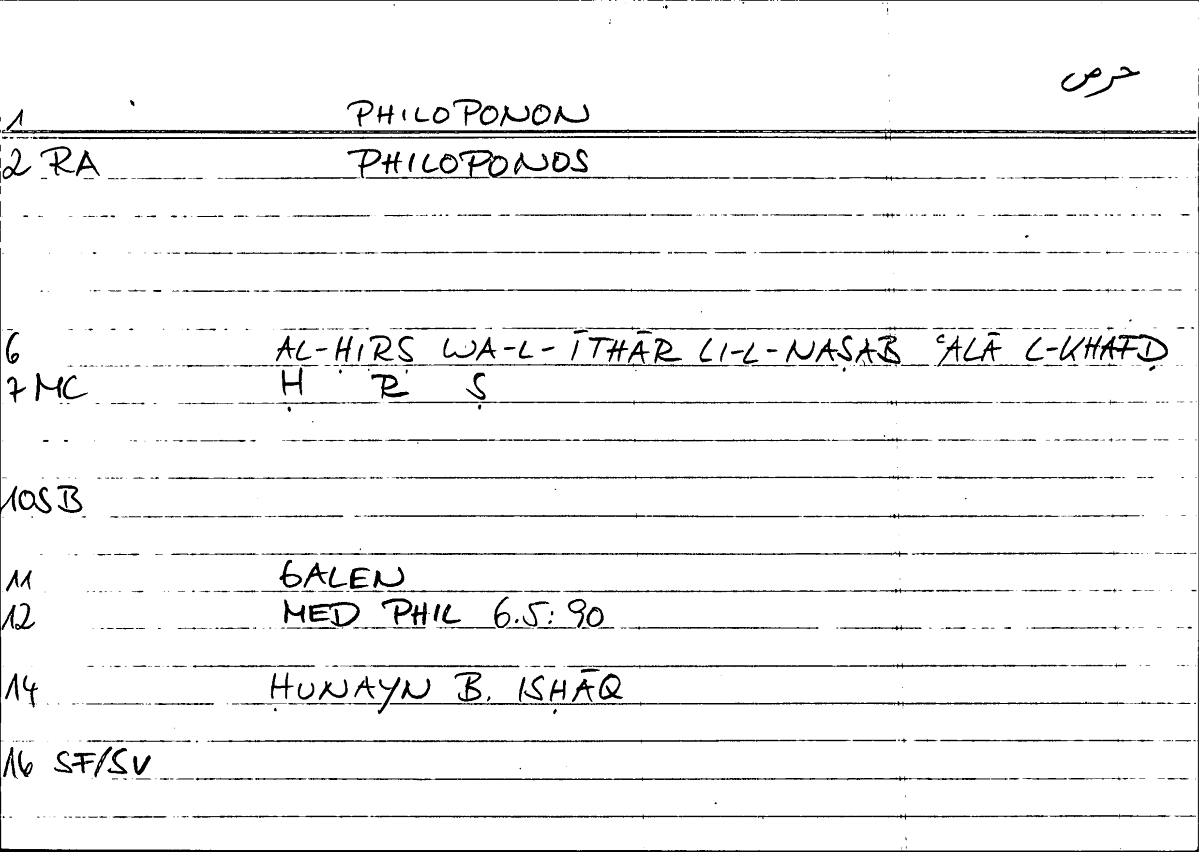 حرص
1 PHILOPONON
2 RA PHILOPONOS
6 AL-ḤIRṢ WA-L-ĪTHĀR LI-L-NAṢAB ʿALĀ L-KHAFḌ
7 MC Ḥ R Ṣ
10 SB
11 GALEN
12 MED PHIL 6.5: 90
14 ḤUNAYN B. ISḤĀQ
16 SF/SV